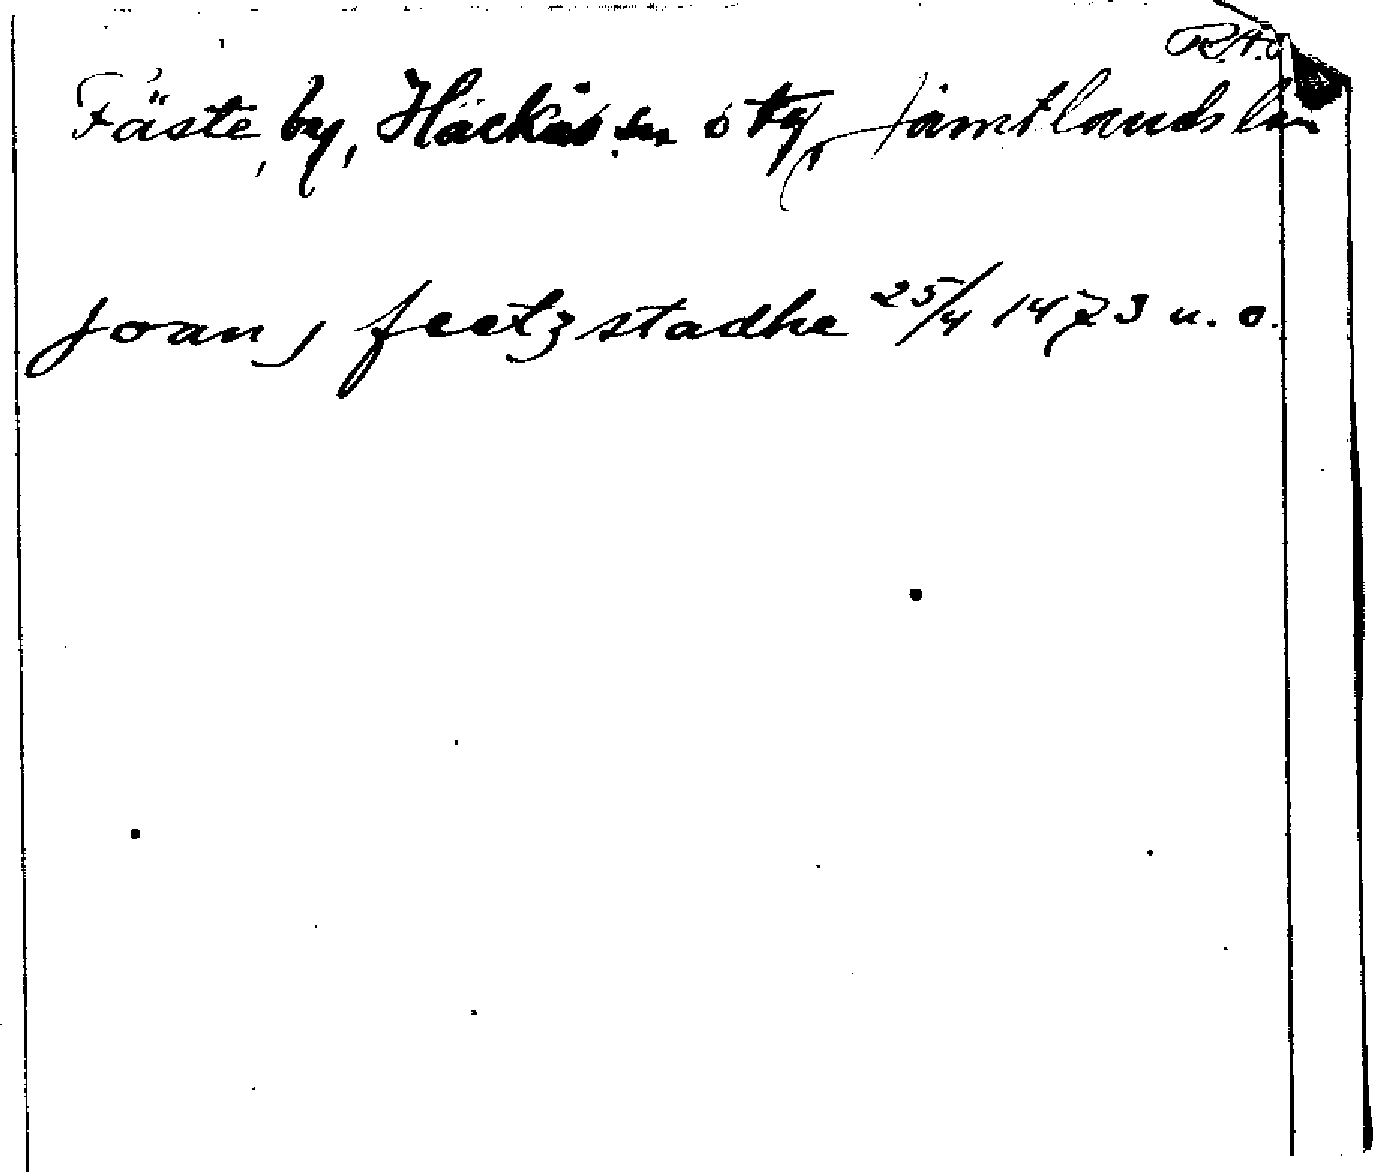 R.A.O
Fäste, by, Hackås sn o tg, Jämtlands län
Joan j feetzstadhe 25/4 1473 u. o.